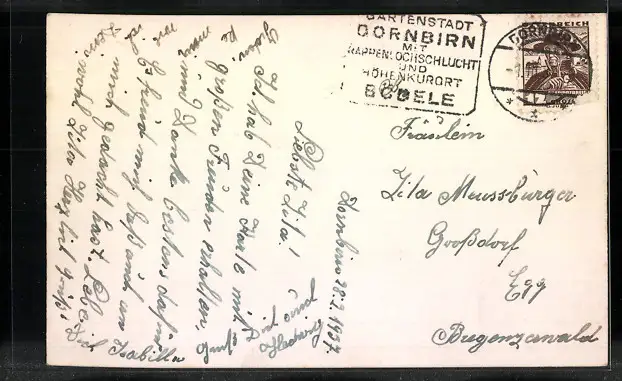 GARTENSTADT
DORNBIRN
MIT
RAPPENLOCHSCHLUCHT
UND
HÖHENKURORT
BÖDELE
DORNBIRN
Fräulein
Zita Meussburger
Großdorf
Egg
Bregenzerwald
Dornbirn 26.2.1937
Liebste Zita!
Ich hab Deine Karte mit
großen Freuden erhalten,
und Danke bestens dafür
Es freud mich daß auch an
mich gedacht hast. Liebe
Zita
Dich Isabilla
Gruß Dich auch
Hedwig